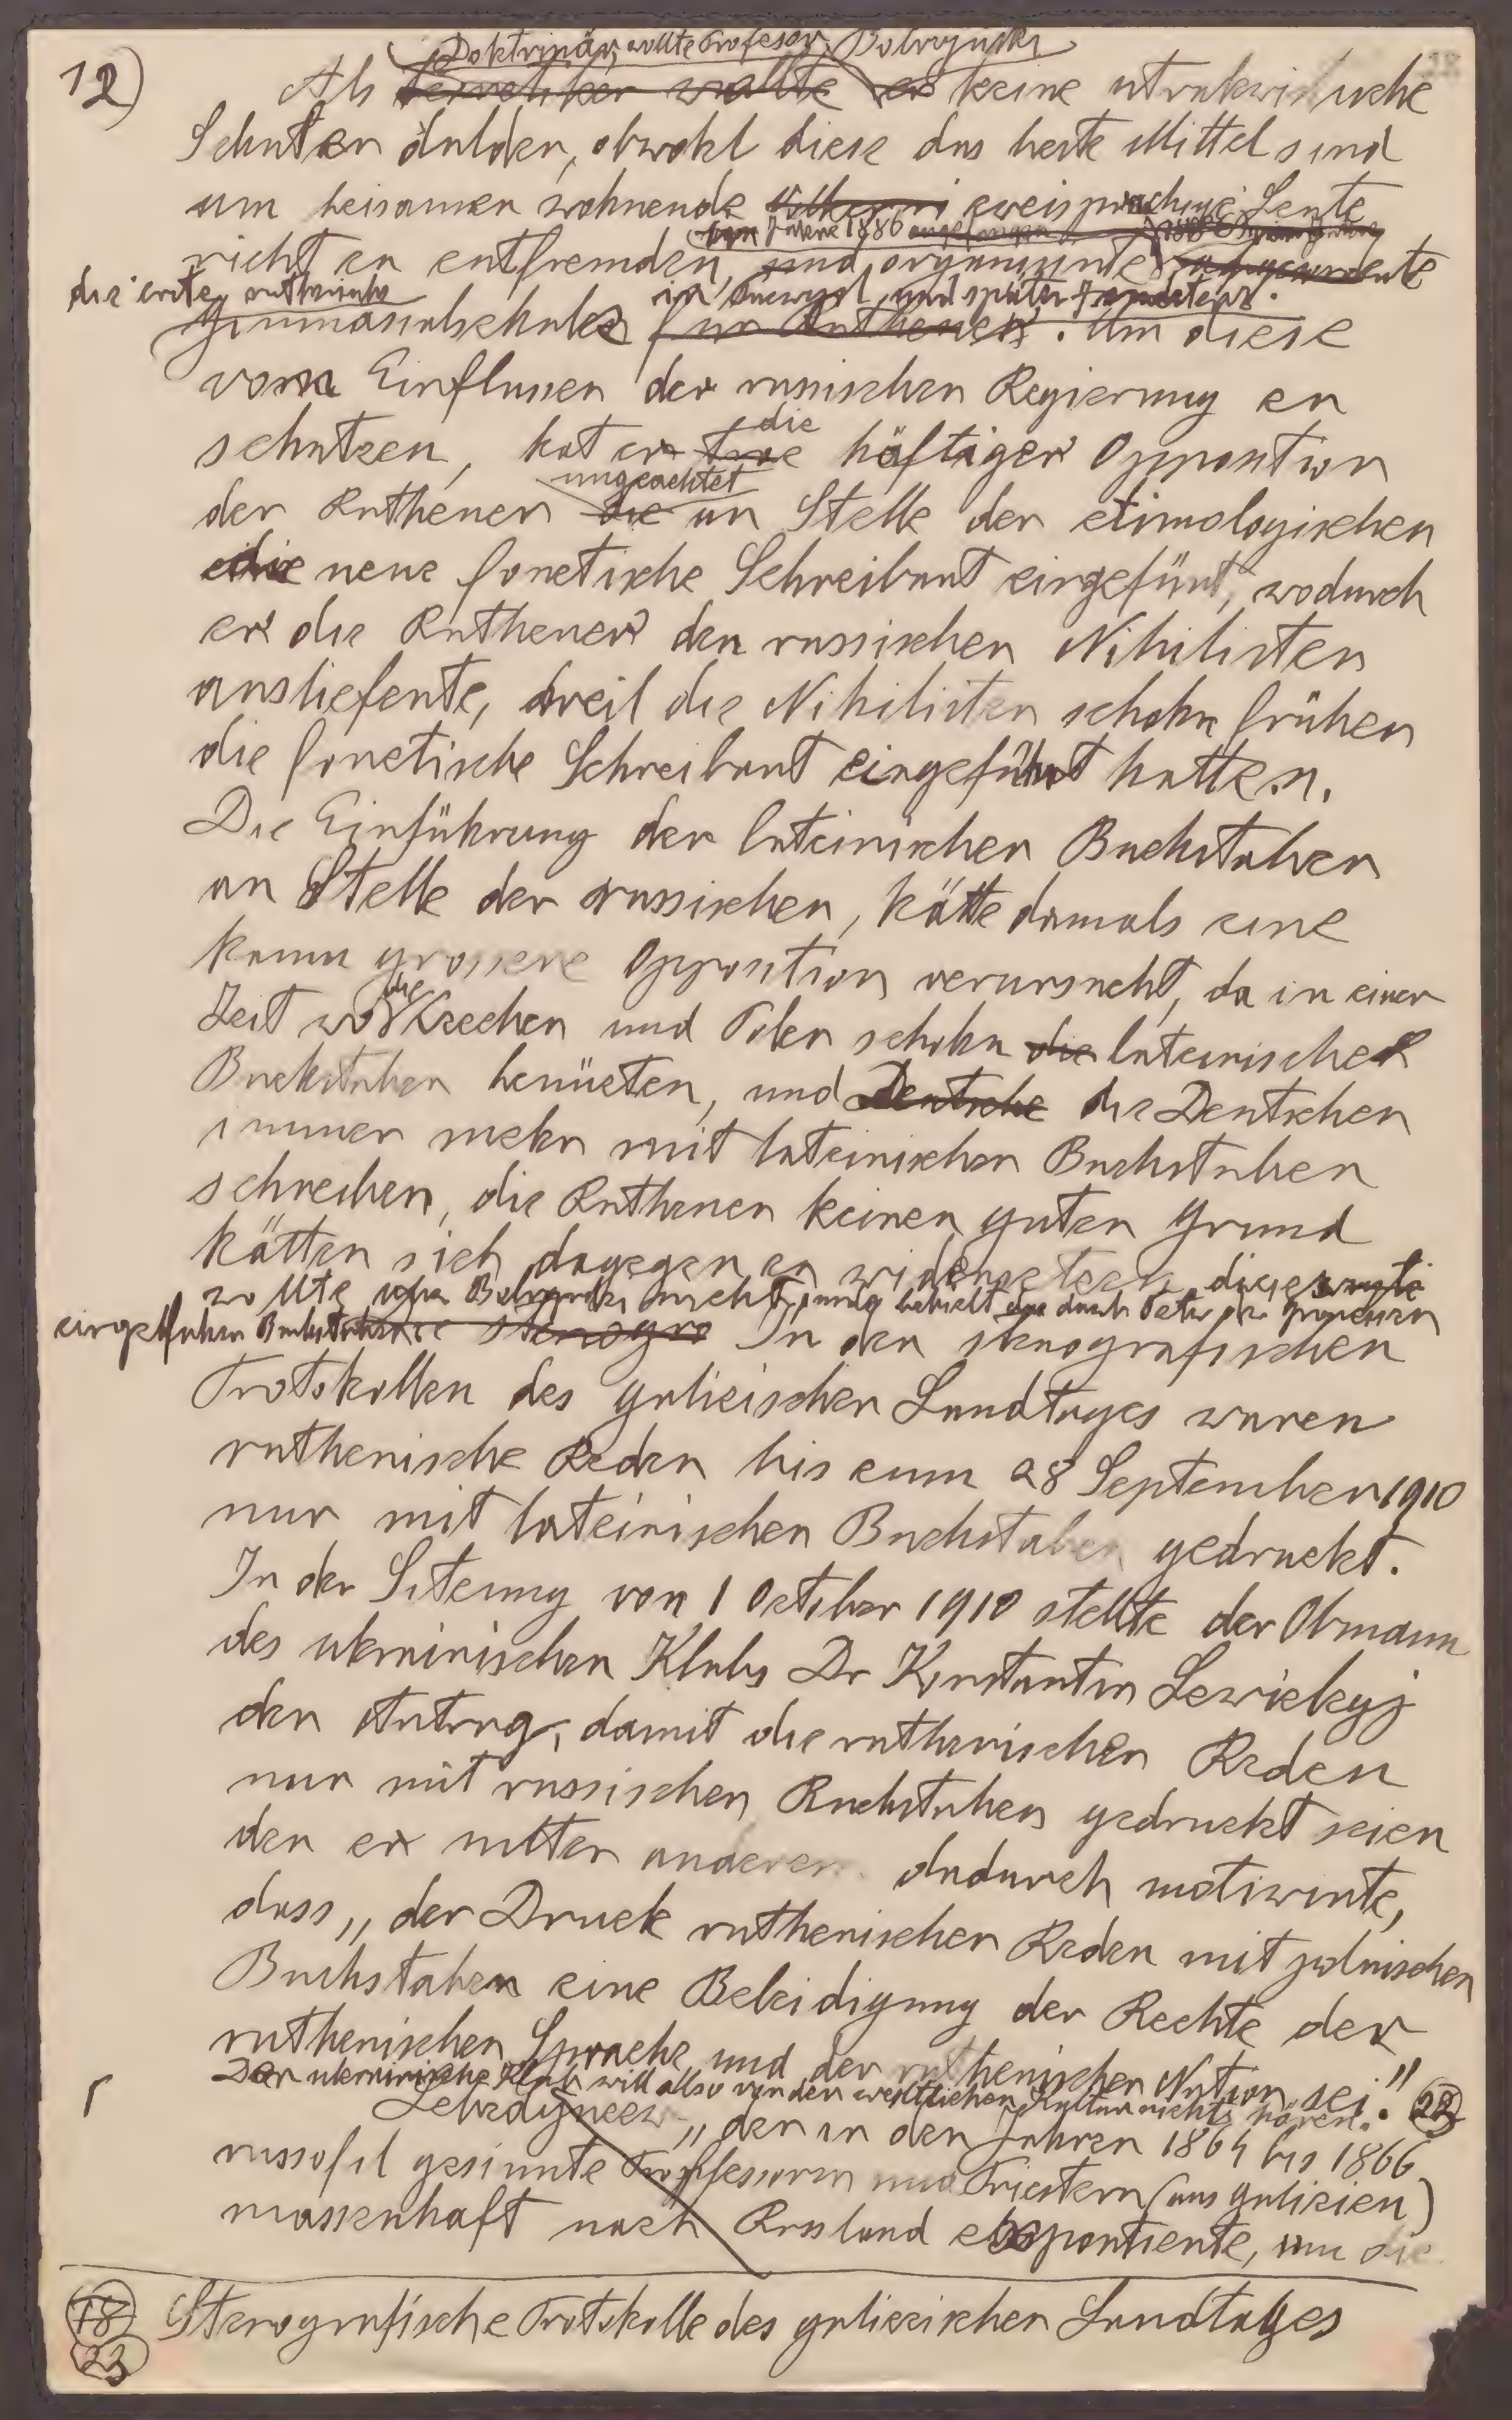 12)
Doktrinär, wollte Profesor Bobrzynski
Als Teoretiker wollte er keine utrakwistische
Schulen dulden, obwohl diese das beste Mittel sind
um beisamen wohnende Völker zweisprachige Leute
vom Jahre 1886 angefangen
nicht zu entfremden, und organisirte abgesonderte
die erste ruthenische in Przemysl, und später
Gimnasialschule für Ruthenen. Um diese
vom Einflussen der russischen Regierung zu
die
schutzen, hat er troz häftiger Opposition
ungeachtet
der Ruthenen die an Stelle der etimologischen
die neue fonetische Schreibart eingefürt, wodurch
er die Ruthenen den russischen Nihilisten
ausliefente, weil die Nihilisten schohn früher
die fonetische Schreibart eingeführt hatten.
Die Einführung der lateinischen Buchstaben
an Stelle der russischen, hätte damals eine
kaum grossere Opposition verursacht, da in einer
die
Zeit wo Czechen und Polen schohn die lateinischen
Buchstaben benüzten, und Deutsche die Deutschen
immer mehr mit lateinischen Buchstaben
schreiben, die Ruthenen keinen guten Grund
hätten sich dagegen zu widersetzen, dieses
wollte Bobrzynski nicht, und behielt die durch Peter den Grossen
eingeführten Buchstaben stenogra In den stenografischen
Protokollen des galizischen Landtages waren
ruthenische Reden bis zum 28 September 1910
nur mit lateinischen Buchstaben gedruckt.
In der Sitzung von 1 October 1910 stellte der Obmann
des ukrainischen Klubs Dr Konstantin Lewickyj
den Antrag, damit die ruthenischen Reden
nur mit russischen Buchstaben gedruckt seien
den er unter anderem dadurch motiwirte,
dass „der Druck ruthenischer Reden mit polnischen
Buchstaben eine Beleidigung der Rechte der
ruthenischen Sprache und der ruthenischen Nation sei."
Der ukrainische Klub will allso von der westlichen Kultur nichts hören. 22
Lebedyncew „der in den Jahren 1864 bis 1866
russofil gesinnte Proffessoren und Priestern (aus Galizien)
massenhaft nach Russland exportierte, um die
18 Stenografische Protokolle des galizischen Landtages
23